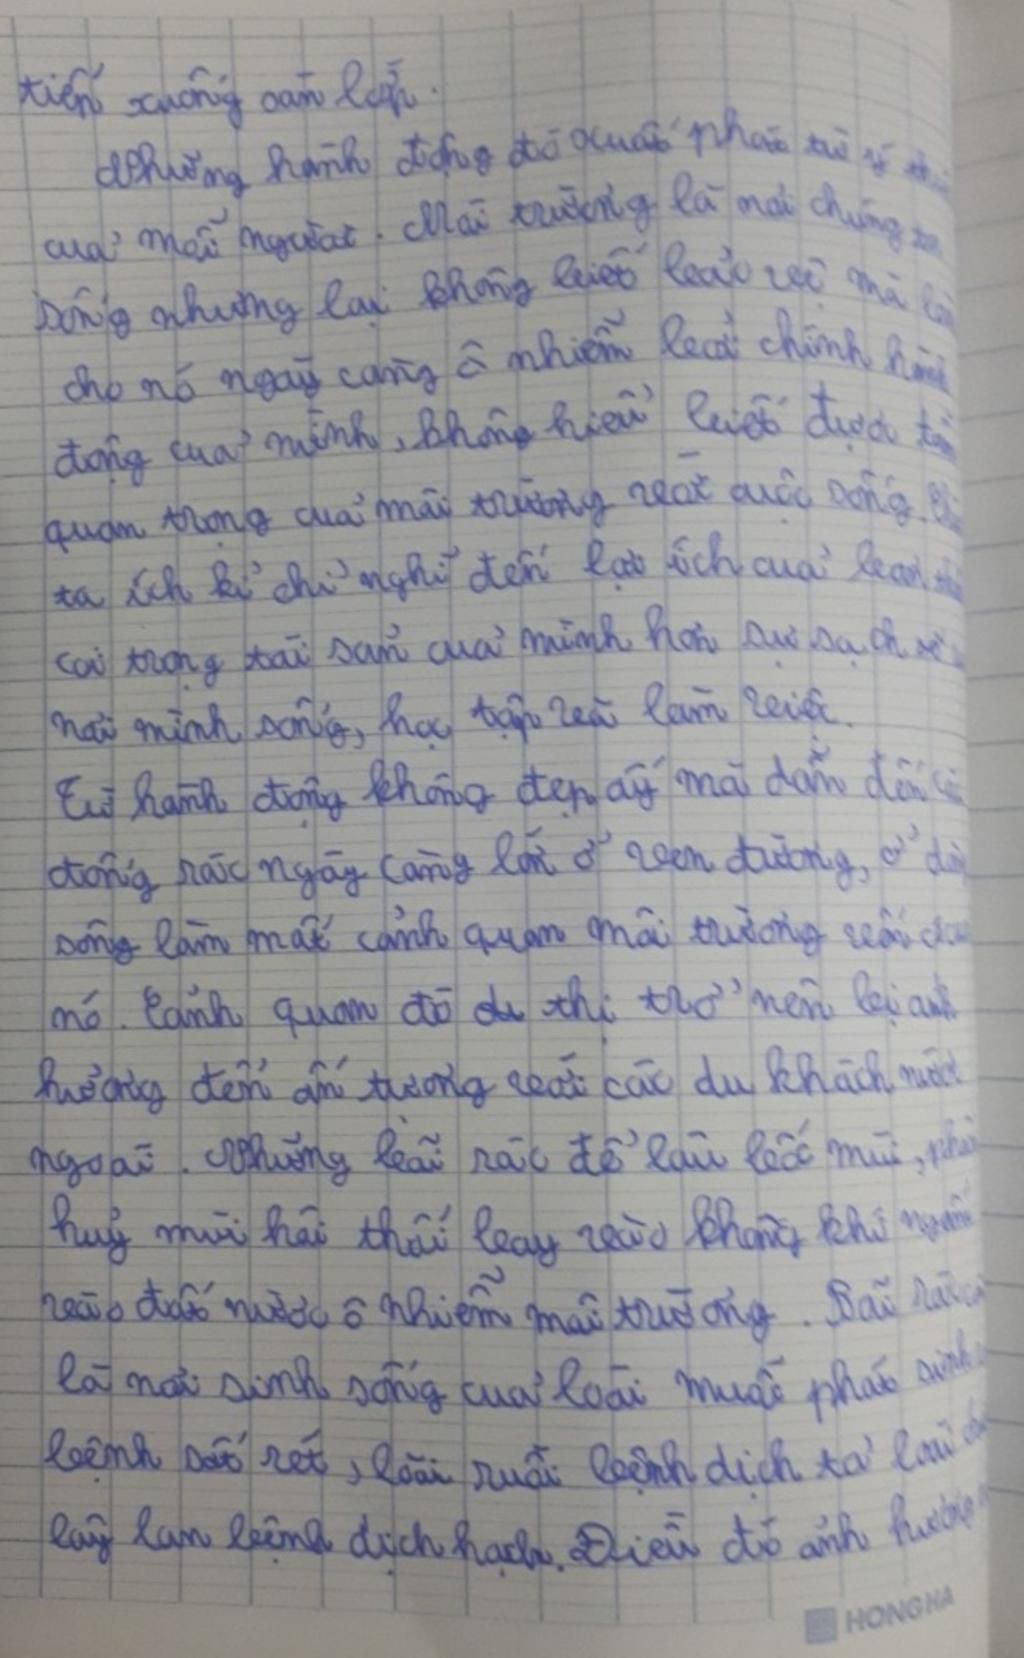 tiến xuống
Những hành động đó xuất phát từ ý
của mỗi người. Môi trường là nơi chúng ta
sống nhưng lại không biết bảo vệ mà
cho nó ngày càng ô nhiễm bởi chính hành
động của mình, không hiểu biết được
quan trọng của môi trường với cuộc sống.
ta ích kỉ chỉ nghĩ đến lợi ích của
coi trọng tài sản của mình hơn sự sạch sẽ
nơi mình sống, học tập và làm việc.
Từ hành động không đẹp ấy mà dẫn đến
đống rác ngày càng lớn ở ven đường, ở
sông làm mất cảnh quan môi trường vốn
nó. Cảnh quan đô thị trở nên bị ảnh
hưởng đến ấn tượng với các du khách nước
ngoài. Những bãi rác để lâu bốc mùi,
huỷ mùi hôi thối bay vào không khí ngấm
vào đất nước ô nhiễm môi trường. Bãi rác
là nơi sinh sống của loài muỗi phát sinh
bệnh sốt rét, loài ruồi bệnh dịch tả loài
lây lan bệnh dịch hạch. Điều đó ảnh hưởng
HONG HA